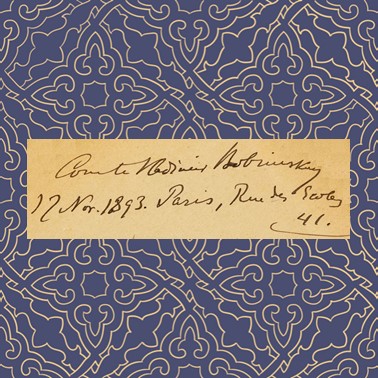 Comte Vladimir Bobrinskoy
17 Nov. 1893. Paris, Rue des Ecoles
41.